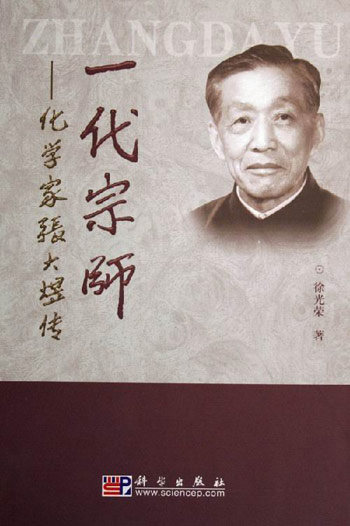 ZHANGDAYU
一代宗師
—化学家張大煜传
⊙徐光荣 著
科学出版社
www.sciencep.com